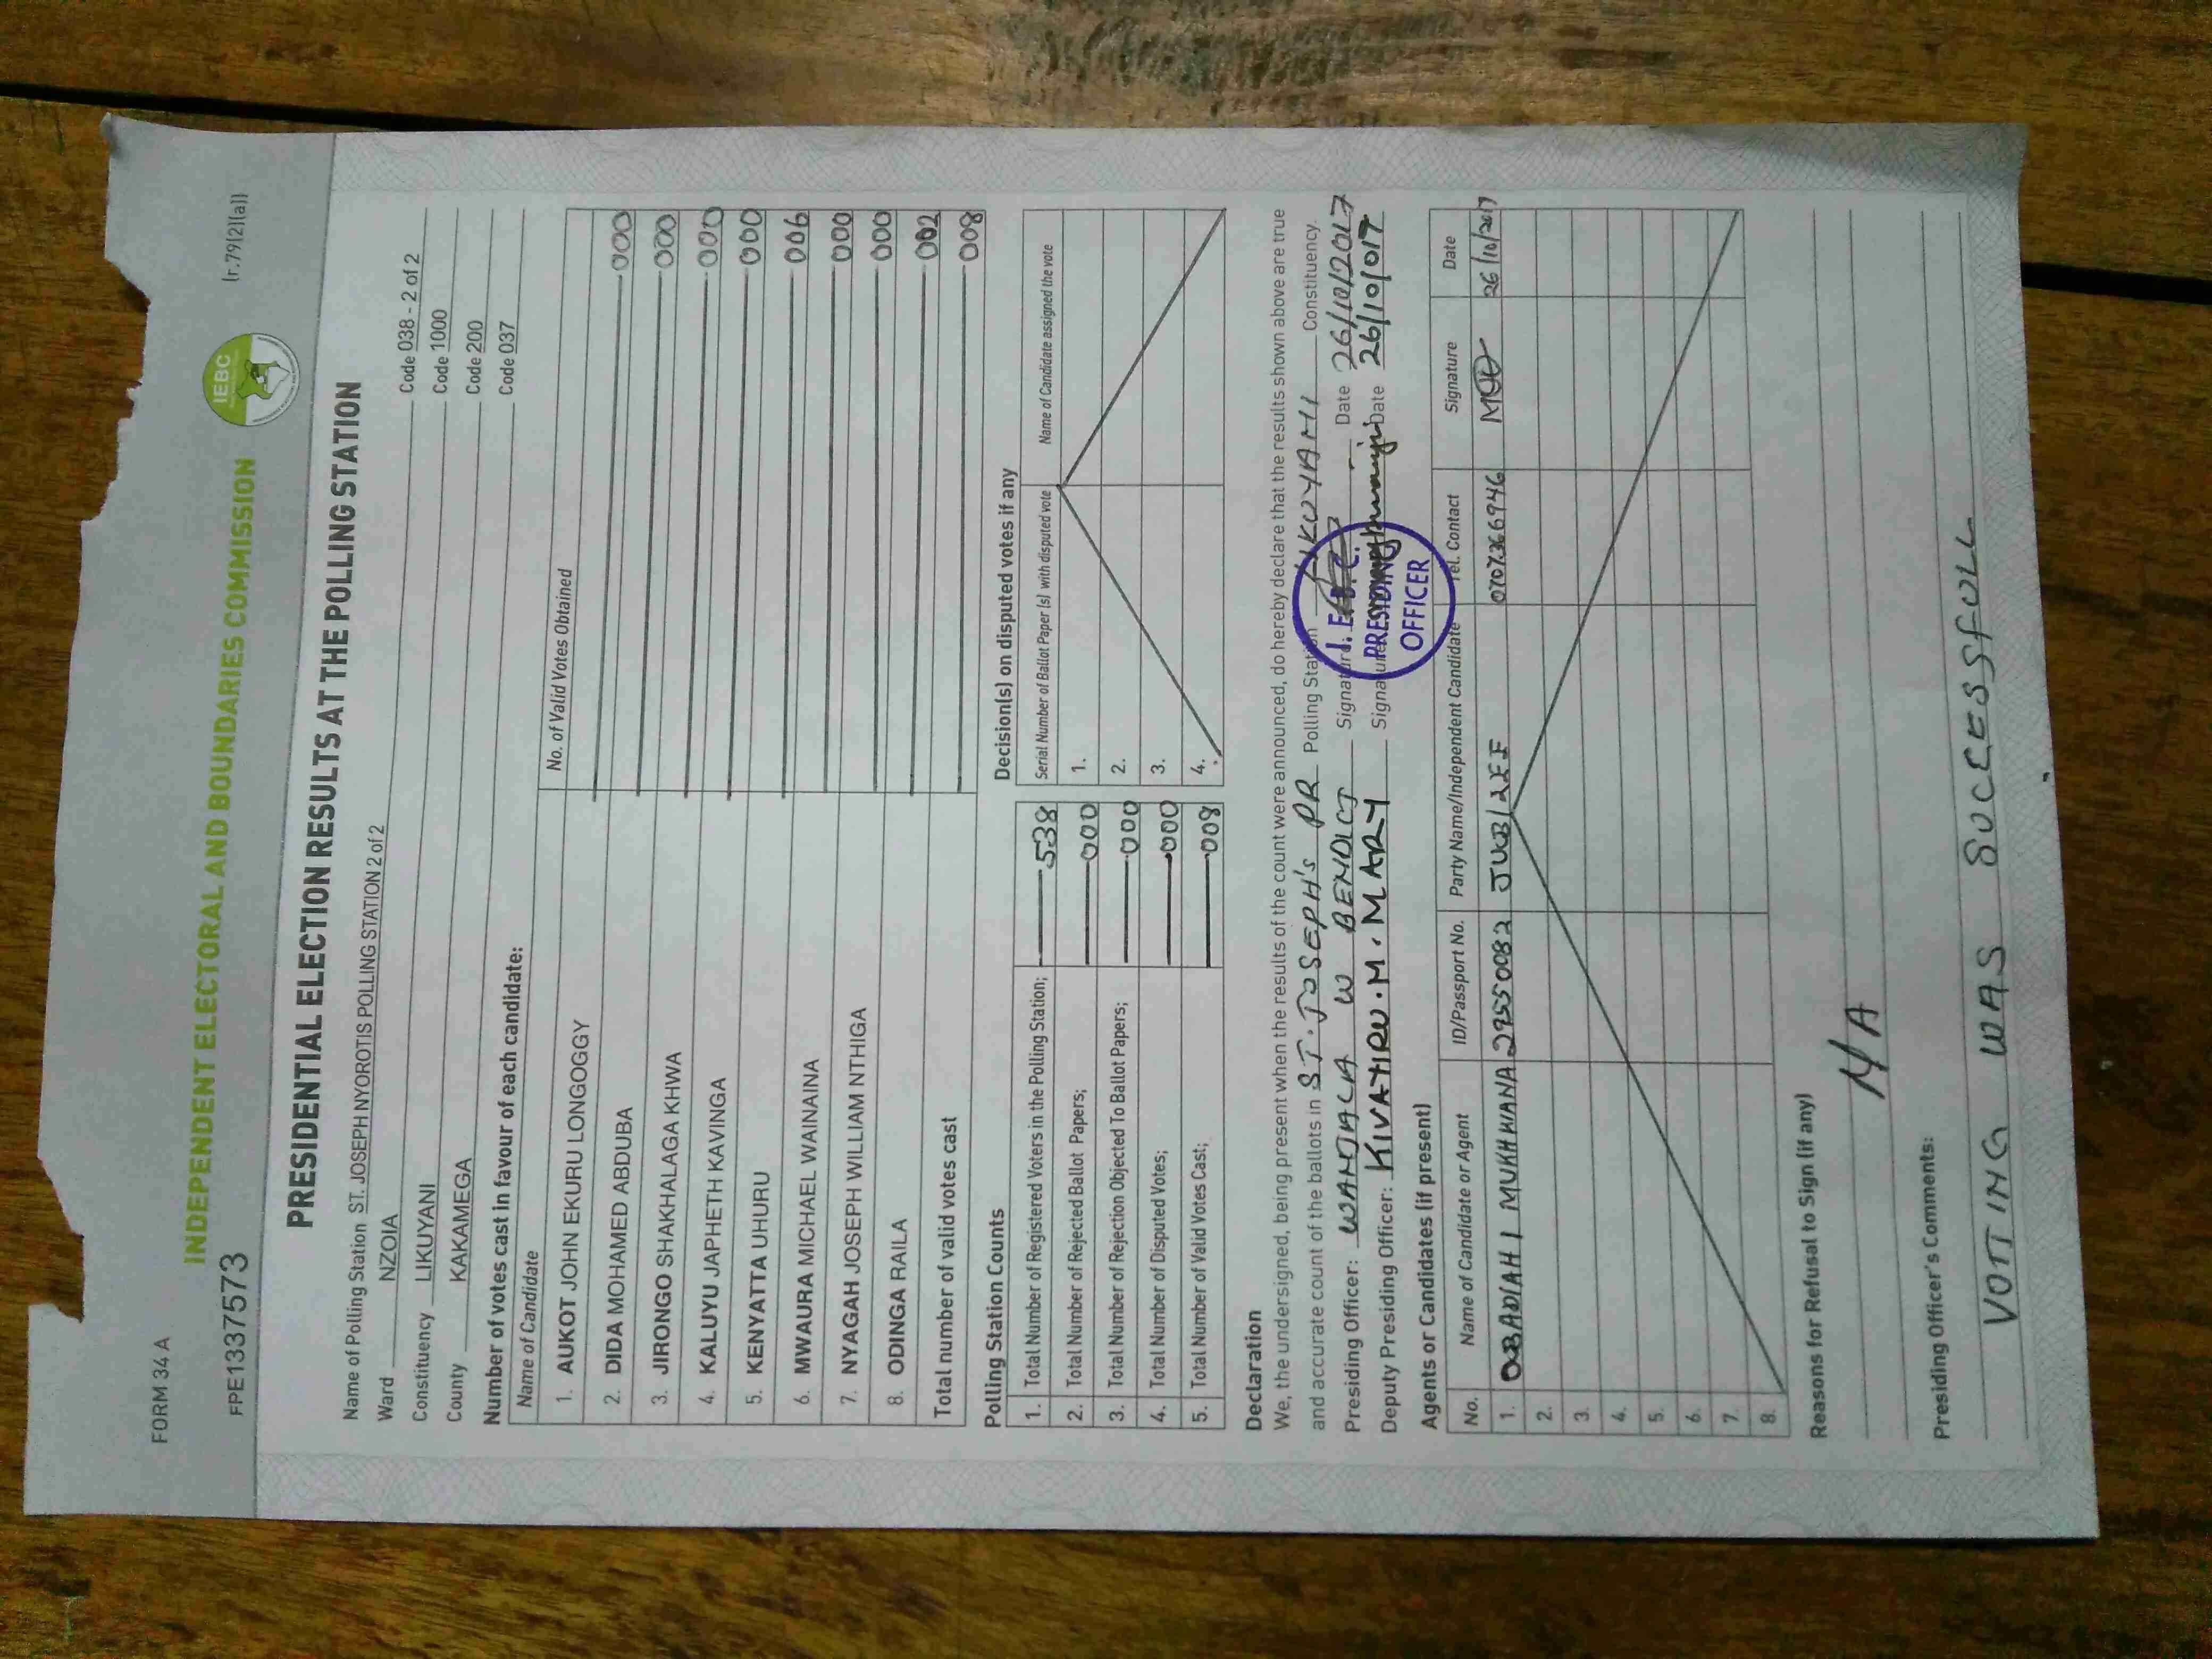 FORM 34 A
(r.79(2)(a))
INDEPENDENT ELECTORAL AND BOUNDARIES COMMISSION
IEBC
FPE1337573
PRESIDENTIAL ELECTION RESULTS AT THE POLLING STATION
Name of Polling Station ST. JOSEPH NYOROTIS POLLING STATION 2 of 2 Code 038 - 2 of 2
Ward NZOIA Code 1000
Constituency LIKUYANI Code 200
County KAKAMEGA Code 037
Number of votes cast in favour of each candidate:
Name of Candidate No. of Valid Votes Obtained
1. AUKOT JOHN EKURU LONGOGGY 000
2. DIDA MOHAMED ABDUBA 000
3. JIRONGO SHAKHALAGA KHWA 000
4. KALUYU JAPHETH KAVINGA 000
5. KENYATTA UHURU 006
6. MWAURA MICHAEL WAINAINA 000
7. NYAGAH JOSEPH WILLIAM NTHIGA 000
8. ODINGA RAILA 002
Total number of valid votes cast 008
Polling Station Counts
1. Total Number of Registered Voters in the Polling Station; 538
2. Total Number of Rejected Ballot Papers; 000
3. Total Number of Rejection Objected To Ballot Papers; 000
4. Total Number of Disputed Votes; 000
5. Total Number of Valid Votes Cast; 008
Decision(s) on disputed votes if any
Serial Number of Ballot Paper (s) with disputed vote Name of Candidate assigned the vote
1.
2.
3.
4.
Declaration
We, the undersigned, being present when the results of the count were announced, do hereby declare that the results shown above are true
and accurate count of the ballots in ST. JOSEPH's PR Polling Station LIKUYANI Constituency.
Presiding Officer: WANJALA W BENDICT Signature Date 26/10/2017
Deputy Presiding Officer: KIVATIRU.M.MARY Signature Date 26/10/017
I.E.B.C.
PRESIDING
OFFICER
Agents or Candidates (if present)
No. Name of Candidate or Agent ID/Passport No. Party Name/Independent Candidate Tel. Contact Signature Date
1. OBADIAH I MUKHWANA 29550082 0707366946 26/10/2017
2.
3.
4.
5.
6.
7.
8.
Reasons for Refusal to Sign (if any)
N/A
Presiding Officer's Comments:
VOTING WAS SUCCESSFULL